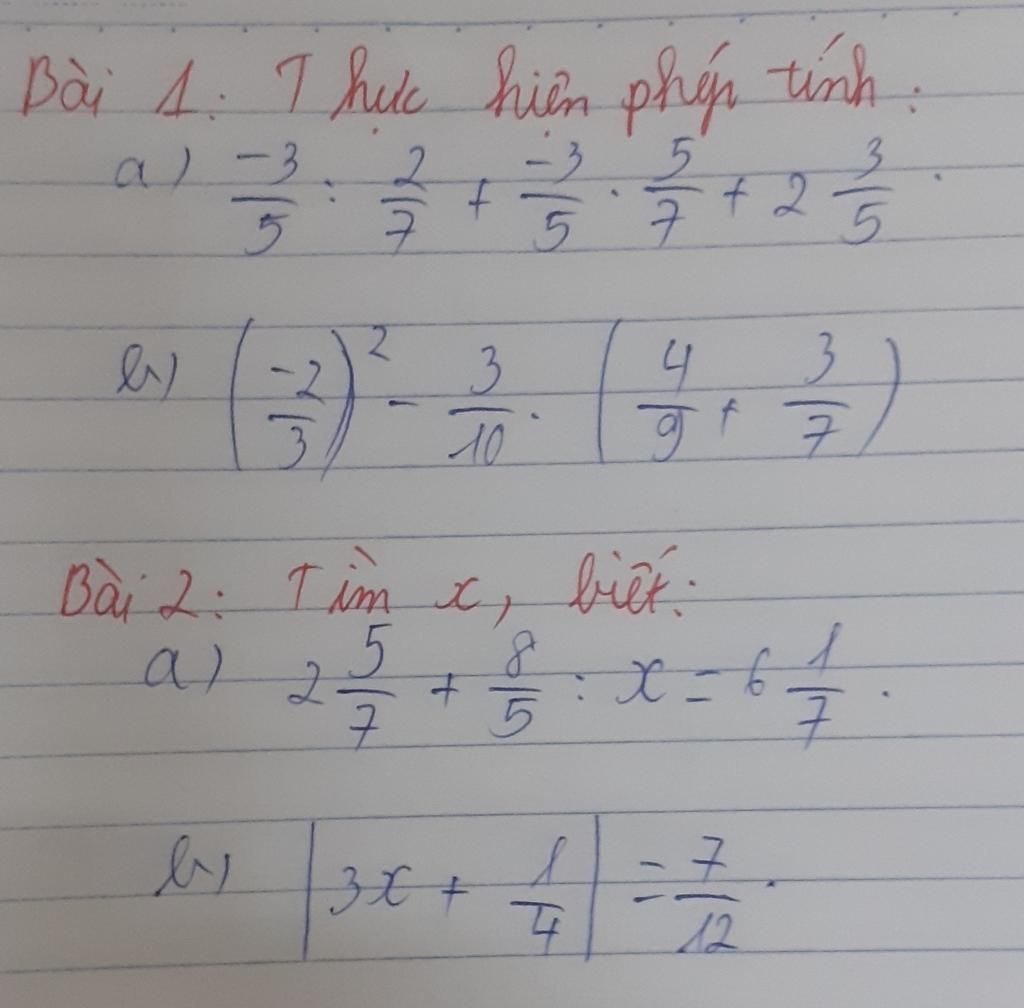 Bài 1: Thực hiện phép tính:
a) \frac{-3}{5} : \frac{2}{7} + \frac{-3}{5} \cdot \frac{5}{7} + 2\frac{3}{5}.
b) \left(\frac{-2}{3}\right)^2 - \frac{3}{10} \cdot \left(\frac{4}{9} + \frac{3}{7}\right)
Bài 2: Tìm x, biết:
a) 2\frac{5}{7} + \frac{8}{5} : x = 6\frac{1}{7}.
b) \left|3x + \frac{1}{4}\right| = \frac{7}{12}.